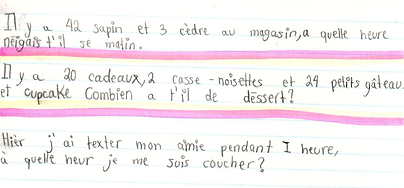 Il y a 42 sapin et 3 cèdre au magasin,a quelle heure
neigais t'il se matin.
Il y a 20 cadeaux,2 casse-noisettes et 24 petits gâteau
et cupcake Combien a t'il de dèssert?
Hièr j'ai texter mon amie pendant I heure,
à quelle heur je me suis coucher?